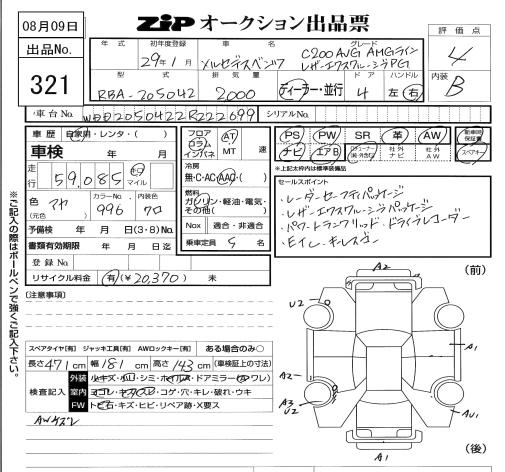 08月09日
ZiP オークション出品票
評価点
4
出品No.
321
年式 初年度登録 車名 グレード
29年1月 メルセデスベンツ C200AVG AMGライン
レザーエクスクルーシブPG
型式 排気量 ドア ハンドル
RBA-205042 2000 ディーラー・並行 4 左 右
内装
B
車台No. WDD2050422R222699 シリアルNo.
車歴 自家用・レンタ・( )
車検 年 月
走行 59,085 キロ マイル
色 カラーNo. 内装色
(元色) 996 クロ
予備検 年 月 日(3・8)No.
書類有効期限 年 月 日迄
登録No.
リサイクル料金 有(¥20,370) 未
フロア コラム インパネ AT MT 速
冷房
無・C・AC・AAC・( )
燃料
ガソリン・軽油・電気・その他( )
Nox 適合・非適合
乗車定員 5 名
PS PW SR 革 AW 新車時保証書
ナビ エアB 社外ナビ 社外AW スペアキー
*上記太枠内は標準装備品です。
セールスポイント
・レーダーセーフティパッケージ
・レザーエクスクルーシブパッケージ
・パワートランクリッド・ドライブレコーダー
・キーレスゴー
※ご記入の際はボールペンで強くご記入下さい。
[注意事項]
スペアタイヤ[有] ジャッキ工具[有] AWロックキー[有] ある場合のみ○
長さ471cm 幅181cm 高さ143cm (車検証上の寸法)
検査記入
外装 ルキズ・小U・シミ・ホイルキズ・ドアミラー(キズ・ワレ)
室内 ヨゴレ・キズ・スレ・コゲ・穴・キレ・破れ・ウキ
FW トビ石・キズ・ヒビ・リペア跡・X要ス
AWキズレ
(前)
A2
U2
A1
A2
A3
U2
AU1
A1
(後)